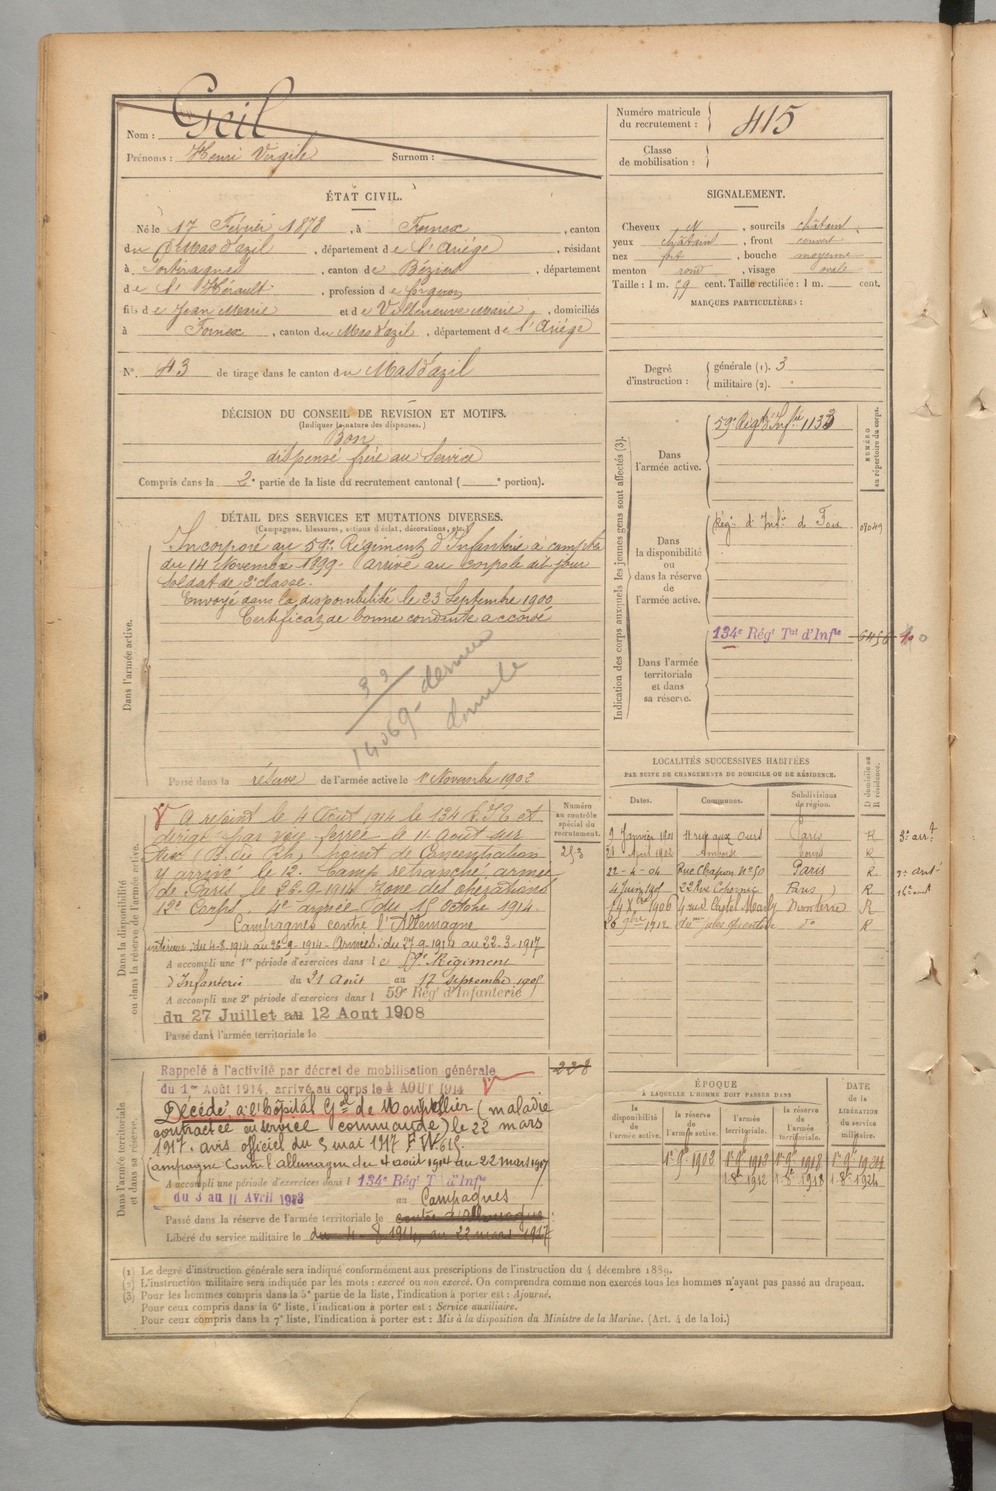 Nom : Geil
Prénoms : Henri Virgile Surnom :
ÉTAT CIVIL.
Né le 17 Février 1878, à Fornex, canton
du Mas d'azil, département de l'Ariège, résidant
à Portiragnes, canton de Béziers, département
de l'Hérault, profession de forgeron
fils de Jean Marie et de Villeneuve Marie, domiciliés
à Fornex, canton du Mas d'azil, département de l'Ariège
N°. 43 de tirage dans le canton du Mas d'azil
DÉCISION DU CONSEIL DE RÉVISION ET MOTIFS.
(Indiquer la nature des dispenses.)
Bon
dispensé frère au service
Compris dans la 2e partie de la liste du recrutement cantonal ( e portion).
DÉTAIL DES SERVICES ET MUTATIONS DIVERSES.
(Campagnes, blessures, actions d'éclat, décorations, etc.)
Dans l'armée active.
Incorporé au 59e Régiment d'Infanterie à compter
du 14 Novembre 1899. arrivé au corps le dit jour
soldat de 2e classe.
Envoyé dans la disponibilité le 23 Septembre 1900
Certificat de bonne conduite accordé
14069 dernier
Passé dans la réserve de l'armée active le 1r Novembre 1902
Dans la disponibilité
ou dans la réserve de l'armée active.
A rejoint le 4 Août 1914 le 134 R.I.T. et
dirigé par voie ferrée le 11 Août sur
(B. du Rh.) point de Concentration
y arrivé le 12. Camp retranché, armée
de Paris, le 26.9.1914 zone des opérations
12e Corps 4e armée du 15 octobre 1914.
Campagnes contre l'Allemagne
intérieur : du 4.8.1914 au 26.9.1914. Armées : du 27.9.1914 au 22.3.1917
A accompli une 1re période d'exercices dans le 59e Régiment
d'Infanterie du 21 Août au 17 Septembre 1905
A accompli une 2e période d'exercices dans l 59e Rég' d'Infanterie
du 27 Juillet au 12 Aout 1908
Passé dans l'armée territoriale le
Numéro
au contrôle
spécial du
recrutement.
253
Dans l'armée territoriale
et dans sa réserve.
Rappelé à l'activité par décret de mobilisation générale
du 1er Août 1914, arrivé au corps le 4 AOUT 1914
Décédé à l'hôpital Gal de Montpellier (maladie
contractée en service commandé) le 22 mars
1917. avis officiel du 5 mai 1917 F.W. 615
Campagne contre l'allemagne du 4 août 1914 au 22 mars 1917
A accompli une période d'exercices dans l 134e Rég' T' d'Infie
du 3 au 11 Avril 1913 au Campagnes
Passé dans la réserve de l'armée territoriale le contre l'Allemagne
Libéré du service militaire le du 4-8 1914, au 22 mars 1917
228
Numéro matricule
du recrutement : 415
Classe
de mobilisation :
SIGNALEMENT.
Cheveux N, sourcils châtain,
yeux châtain, front couvert
nez fort, bouche moyenne
menton rond, visage ovale
Taille : 1 m. 59 cent. Taille rectifiée : 1 m. cent.
MARQUES PARTICULIÈRES :
Degré
d'instruction :
générale (1). 3
militaire (2).
Indication des corps auxquels les jeunes gens sont affectés (3).
NUMÉRO
au répertoire du corps.
Dans
l'armée active.
59e Régt d'Infie 1133
Dans
la disponibilité
ou
dans la réserve
de
l'armée active.
Rég' d'Infie de Foix 07049
Dans l'armée
territoriale
et dans
sa réserve.
134e Rég' Tal d'Infie
LOCALITÉS SUCCESSIVES HABITÉES
PAR SUITE DE CHANGEMENTS DE DOMICILE OU DE RÉSIDENCE.
Dates. Communes. Subdivisions
de région. D domicile ou
R résidence.
9 Janvier 1901 11 rue aux Ours Paris R 3e arrt
21 Avril 1902 Amboise R
22-4-04 Rue Chapon N° 50 Paris R 3e arrt
4 Juin 1905 22 Rue Paris R 16e arrt
1906 4 rue Castel Marly Nanterre R
1912 do R
ÉPOQUE
À LAQUELLE L'HOMME DOIT PASSER DANS
la
disponibilité
de
l'armée active.
la réserve
de
l'armée active.
l'armée
territoriale.
la réserve
de
l'armée
territoriale.
DATE
de la
LIBÉRATION
du service
militaire.
1r 9e 1902
1r 8e 1912 1r 8e 1918 1r 8e 1924
(1) Le degré d'instruction générale sera indiqué conformément aux prescriptions de l'instruction du 4 décembre 1889.
(2) L'instruction militaire sera indiquée par les mots : exercé ou non exercé. On comprendra comme non exercés tous les hommes n'ayant pas passé au drapeau.
(3) Pour les hommes compris dans la 5e partie de la liste, l'indication à porter est : Ajourné.
Pour ceux compris dans la 6e liste, l'indication à porter est : Service auxiliaire.
Pour ceux compris dans la 7e liste, l'indication à porter est : Mis à la disposition du Ministre de la Marine. (Art. 4 de la loi.)